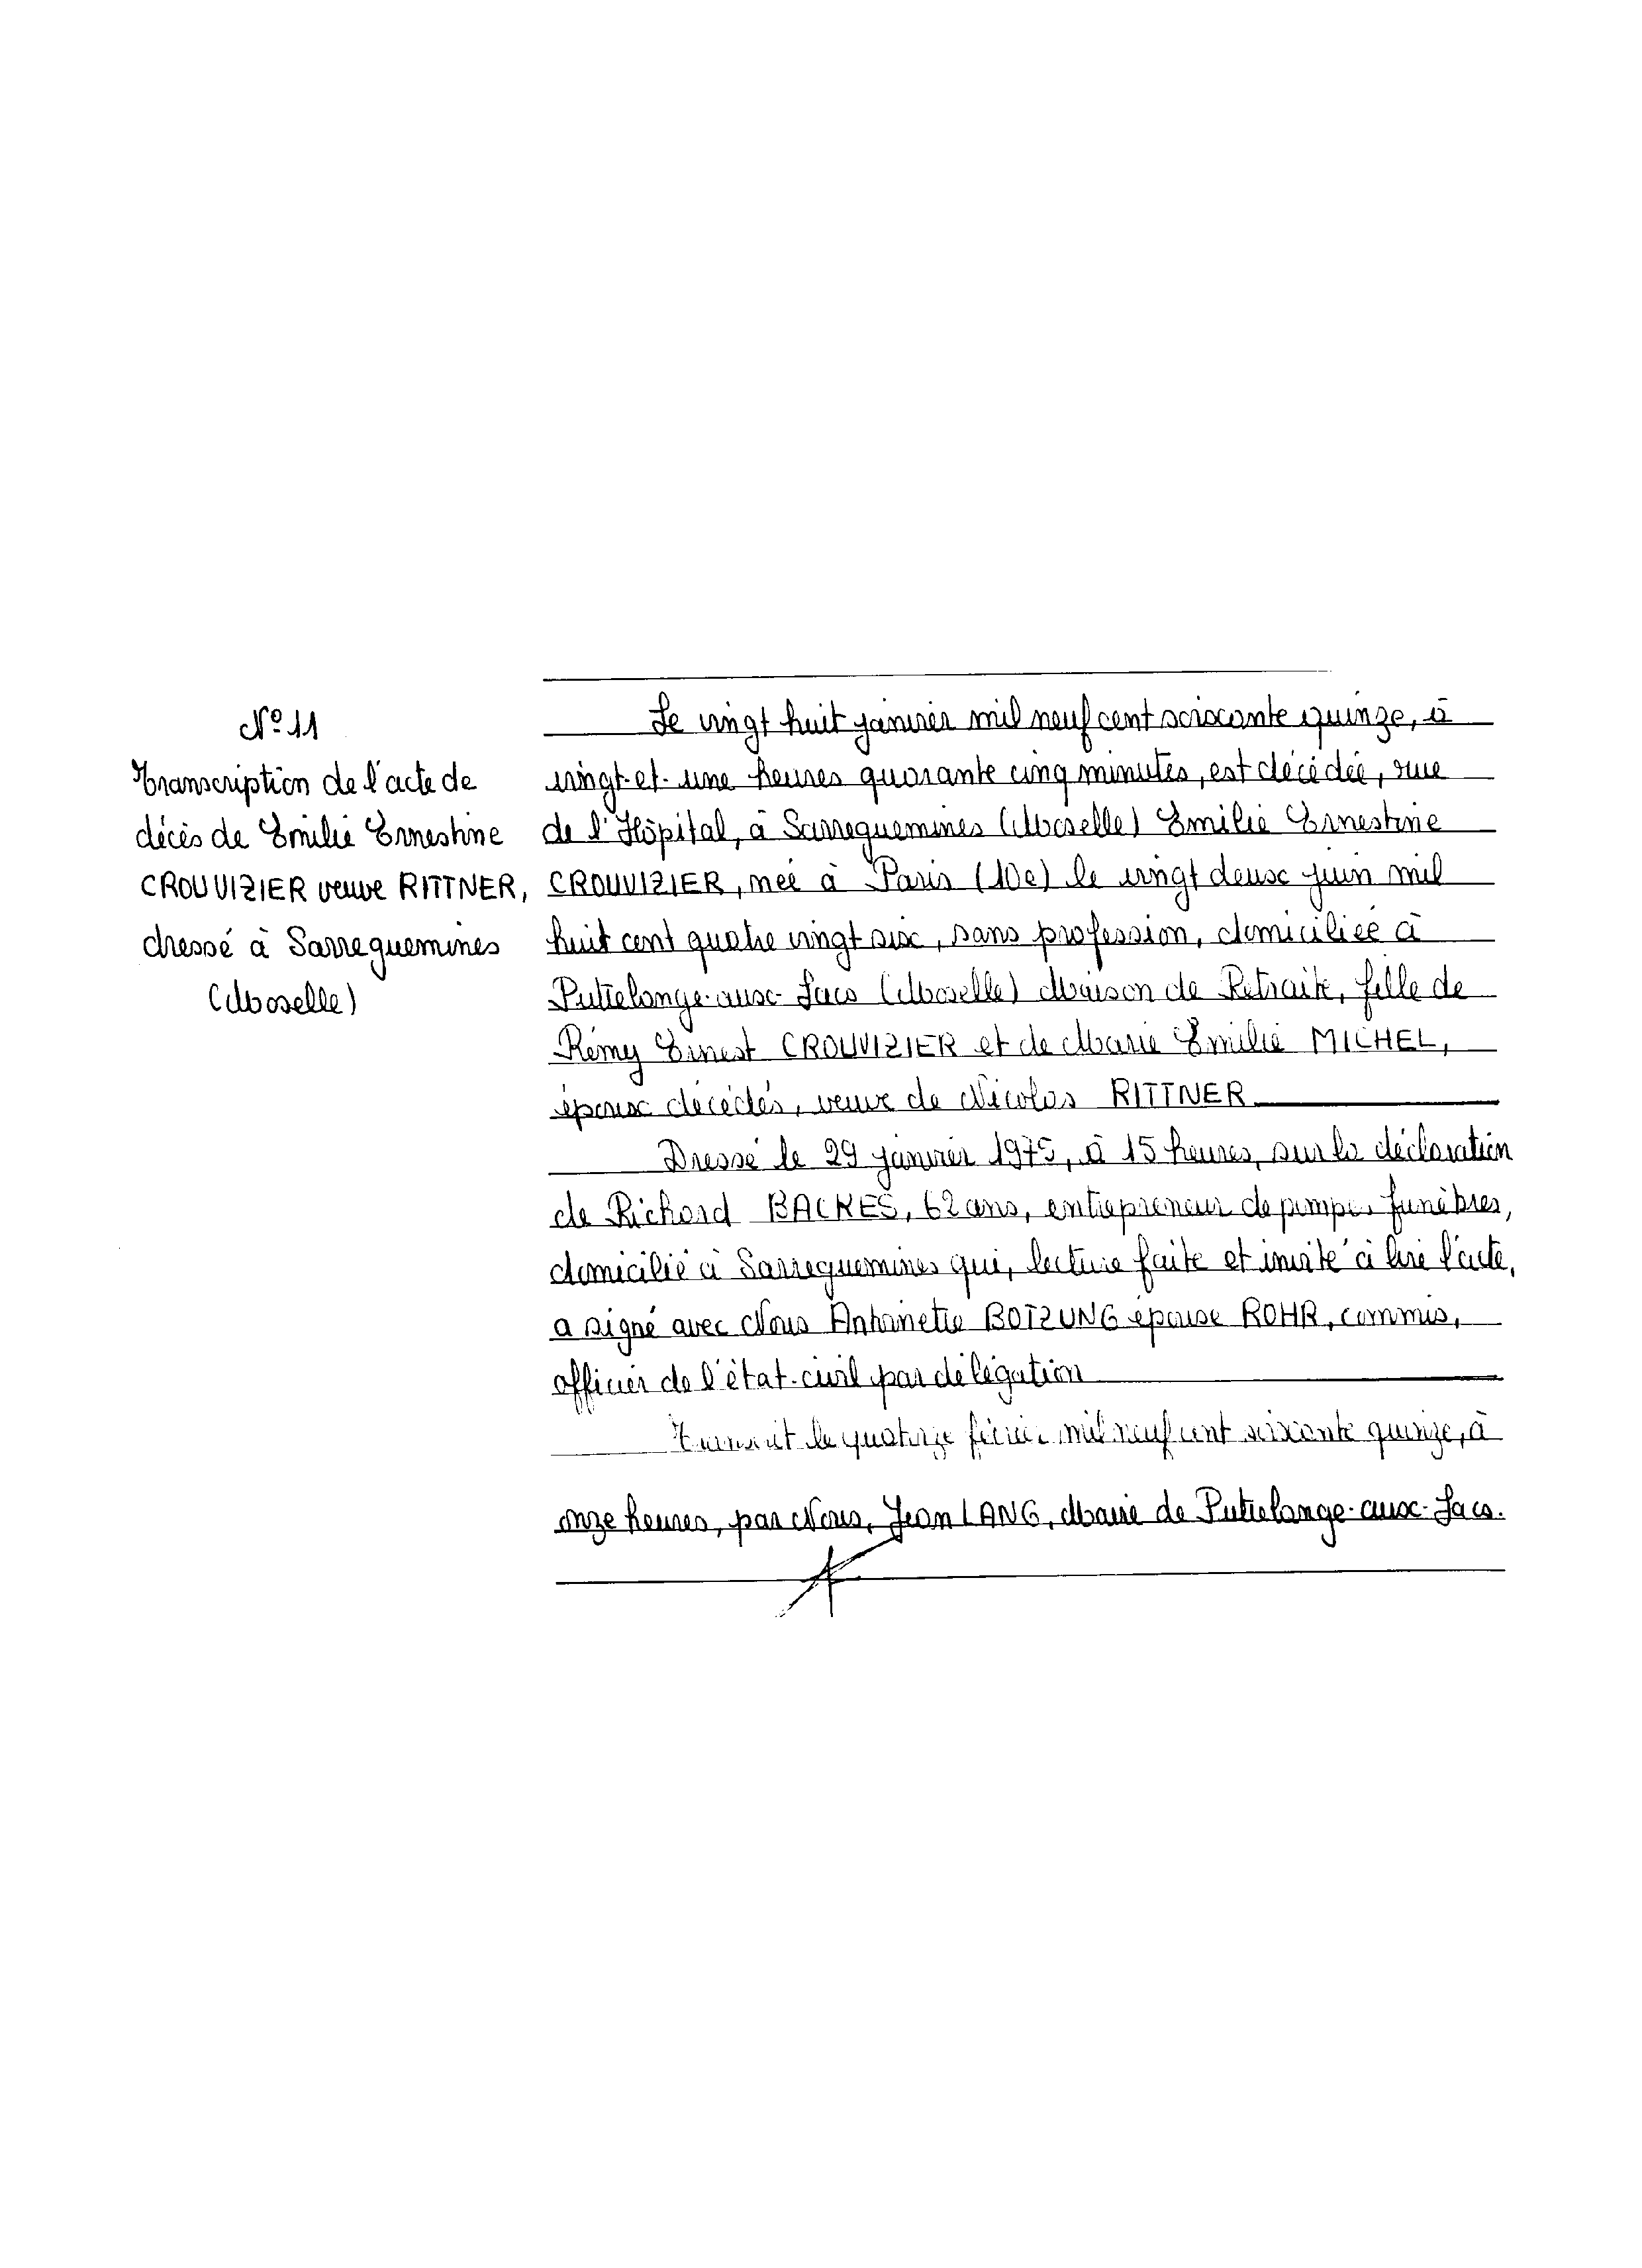 N° 11
Transcription de l'acte de
décès de Emilie Ernestine
CROUVIZIER veuve RITTNER,
dressé à Sarreguemines
(Moselle)
Le vingt huit janvier mil neuf cent soixante quinze, à
vingt-et-une heures quarante cinq minutes, est décédée, rue
de l'Hôpital, à Sarreguemines (Moselle) Emilie Ernestine
CROUVIZIER, née à Paris (10e) le vingt deux juin mil
huit cent quatre vingt six, sans profession, domiciliée à
Puttelange-aux-Lacs (Moselle) Maison de Retraite, fille de
Rémy Ernest CROUVIZIER et de Marie Emilie MICHEL,
époux décédés, veuve de Nicolas RITTNER
Dressé le 29 janvier 1975, à 15 heures, sur la déclaration
de Richard BACKES, 62 ans, entrepreneur de pompes funèbres,
domicilié à Sarreguemines qui, lecture faite et invité à lire l'acte,
a signé avec Nous Antoinette BOTZUNG épouse ROHR, commis,
officier de l'état-civil par délégation
Transcrit le quatorze février mil neuf cent soixante quinze, à
onze heures, par Nous, Jean LANG, Maire de Puttelange-aux-Lacs.